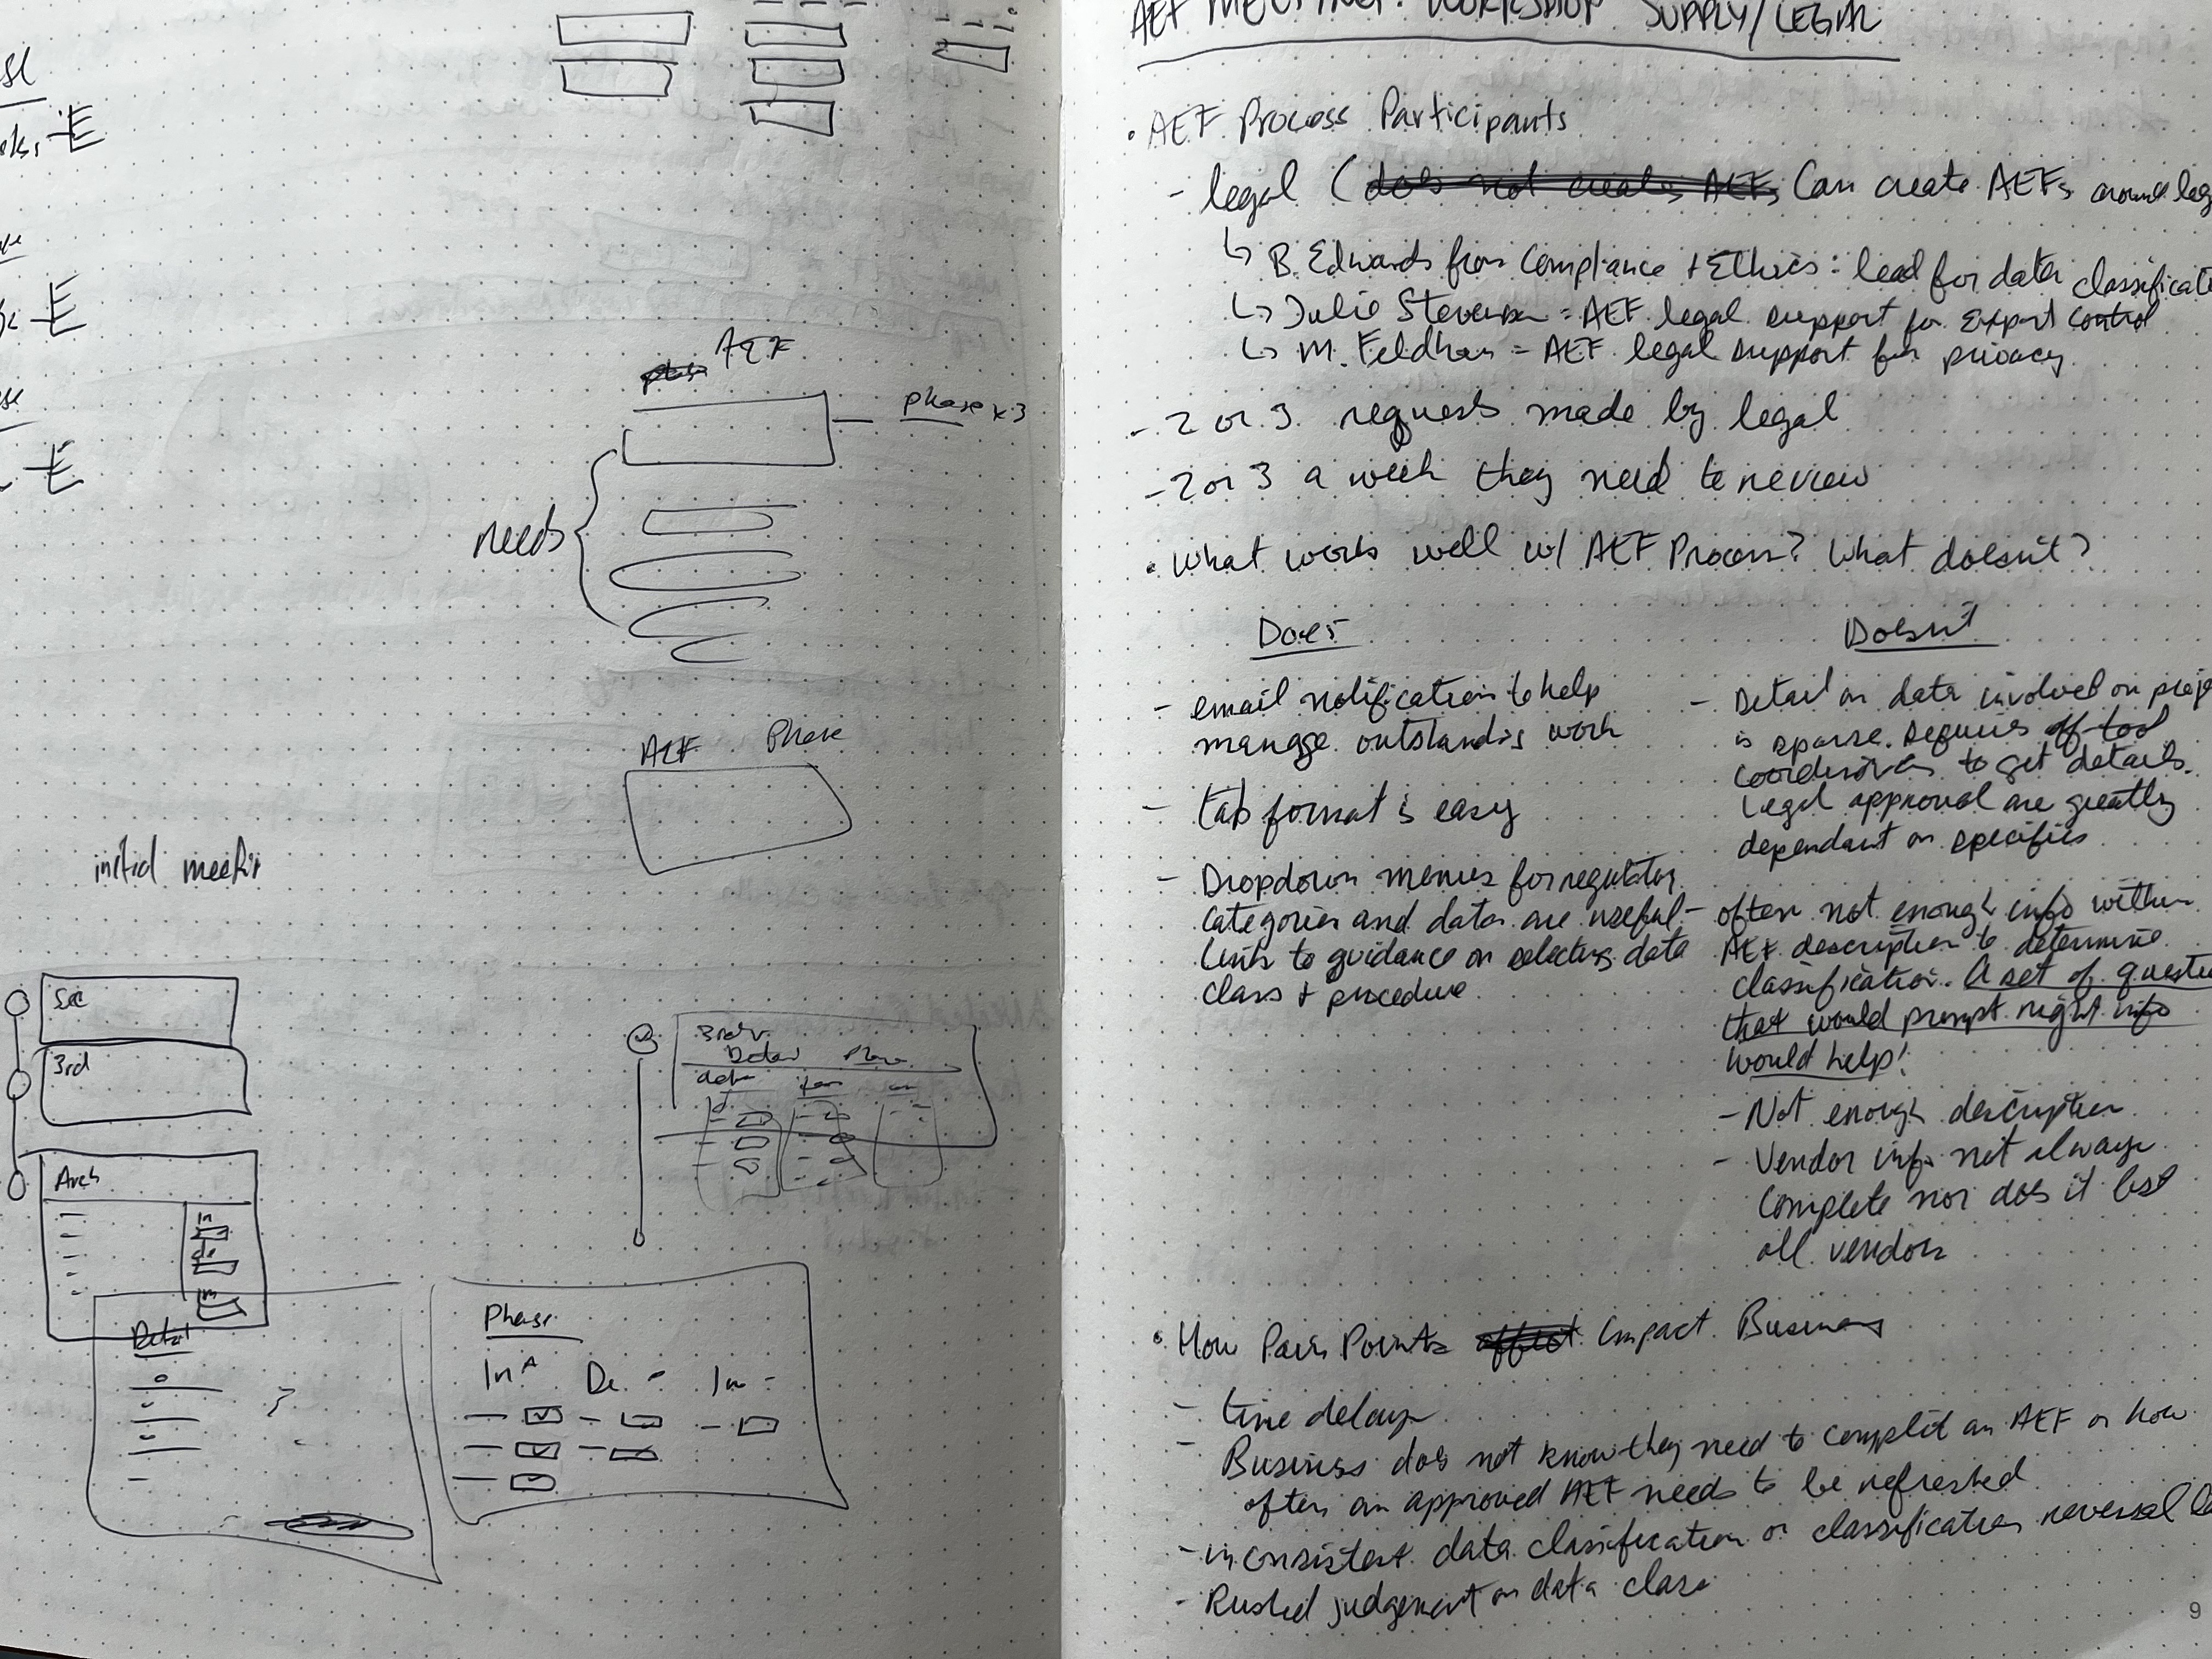 initial
AEF
phase x3
needs
AEF Phase
Sec
3rd
Arch
In
de
Im
Detail
3rd
Detail Phase
data
Phase
In De. Im -
AEF MEETING: WORKSHOP SUPPLY/LEGAL
• AEF Process Participants
- legal ( does not creates AEFs Can create AEFs around
↳ B. Edwards from Compliance + Ethics: lead for data
↳ Julie = AEF legal support for Export control
↳ M. = AEF legal support for privacy
- 2 or 3 requests made by legal
- 2 or 3 a week they need to review
• What works well w/ AEF Process? What doesn't?
Does
- email notification to help
manage outstanding work
- tab format is easy
- Dropdown menus for regulatory
categories and data are useful
links to guidance on selecting data
class + procedure
Doesnt
- Detail on data involved on
is sparse. Requires off-tool
coordination to get details.
Legal approval are greatly
dependant on specifics
- often not enough info within
AEF description to determine
classification. A set of
that would prompt right info
would help!
- Not enough description
- Vendor info not always
complete nor does it list
all vendors
• How Pain Points affect Impact Business
- time delays
- Business does not know they need to complete an AEF or how
often an approved AEF needs to be refreshed
- inconsistent data classification or classification reversal
- Rushed judgement on data class
9